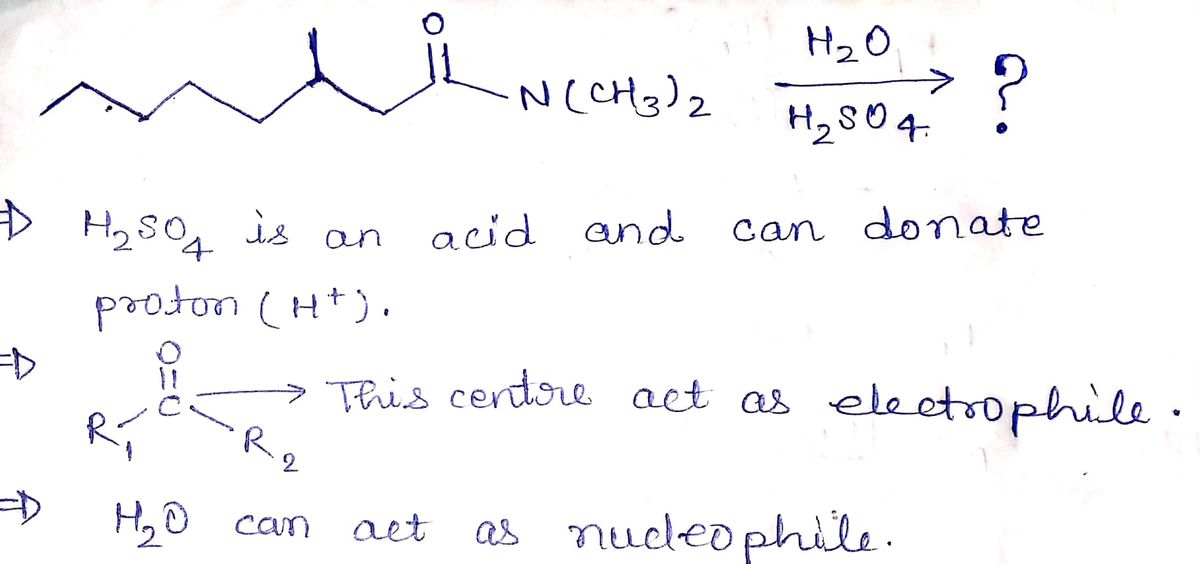 O
N(CH3)2 H2O ?
H2SO4.
⇒ H2SO4 is an acid and can donate
proton (H+).
⇒ O
C → This centre act as electrophile.
R1 R2
⇒ H2O can act as nucleophile.